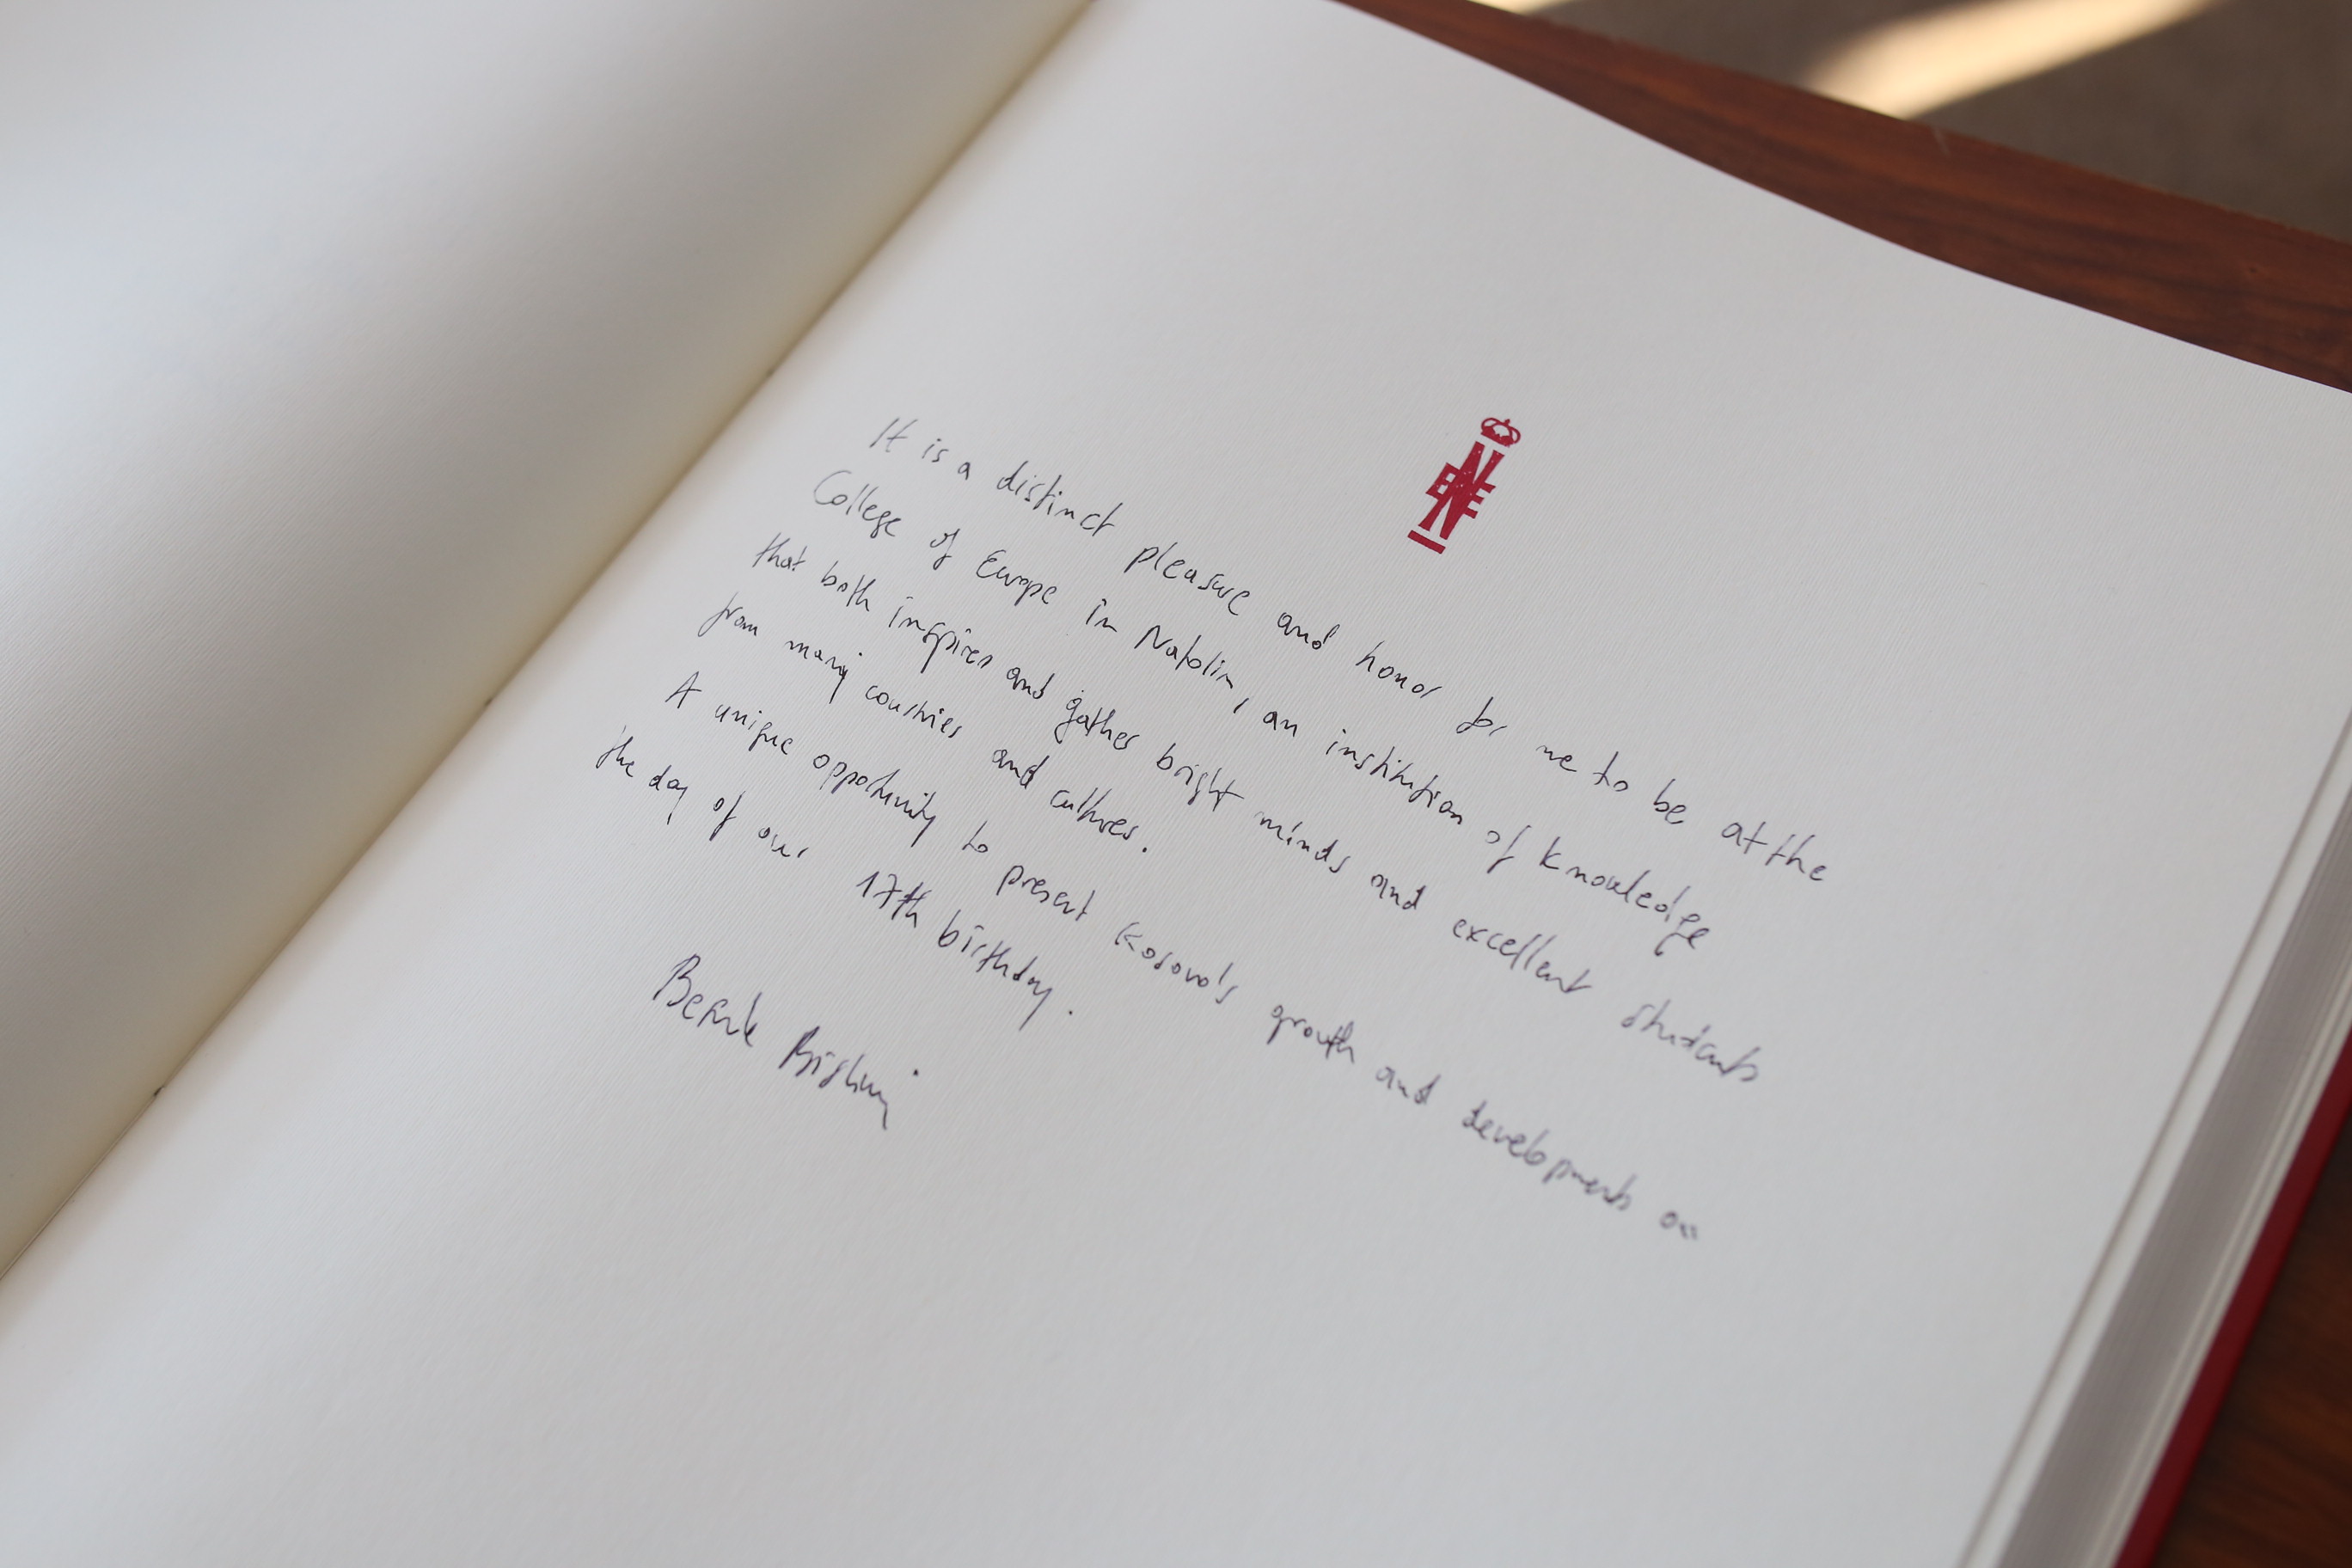 It is a distinct pleasure and honor for me to be at the
College of Europe in Natolin, an institution of knowledge
that both inspires and gathes bright minds and excellent students
from many countries and cultures.
A unique opportunity to present Kosovo's growth and developments on
the day of our 17th birthday.